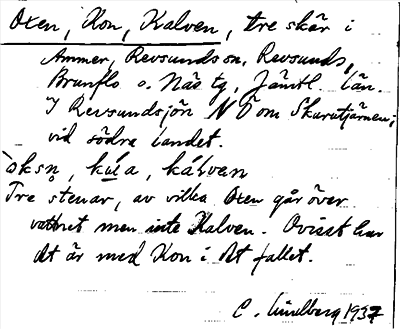 Oxen, Kon, Kalven, tre skär i
Ammer, Revsundssn, Revsunds,
Brunflo o. Näs tg, Jämtl. län.
I Revsundsjön NÖ om Skurutjärnen;
vid södra landet.
òksn̥, kúa, kálven
Tre stenar, av vilka Oxen går över
vattnet men inte Kalven. Ovisst hur
det är med Kon i det fallet.
C. Lindberg 1937